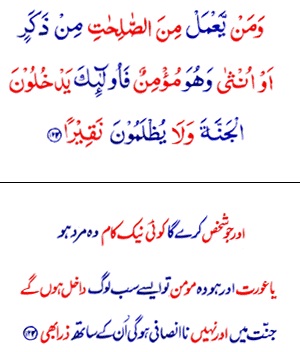 وَمَنْ يَّعْمَلْ مِنَ الصّٰلِحٰتِ مِنْ ذَكَرٍ
اَوْ اُنْثٰى وَهُوَ مُؤْمِنٌ فَاُولٰٓئِكَ يَدْخُلُوْنَ
الْجَنَّةَ وَلَا يُظْلَمُوْنَ نَقِيْرًا ﴿۱۲۴﴾
اور جو شخص کرے گا کوئی نیک کام وہ مرد ہو
یا عورت اور ہو وہ مومن تو ایسے سب لوگ داخل ہوں گے
جنّت میں اور نہیں ناانصافی ہوگی اُن کے ساتھ ذرا بھی ﴿۱۲۴﴾